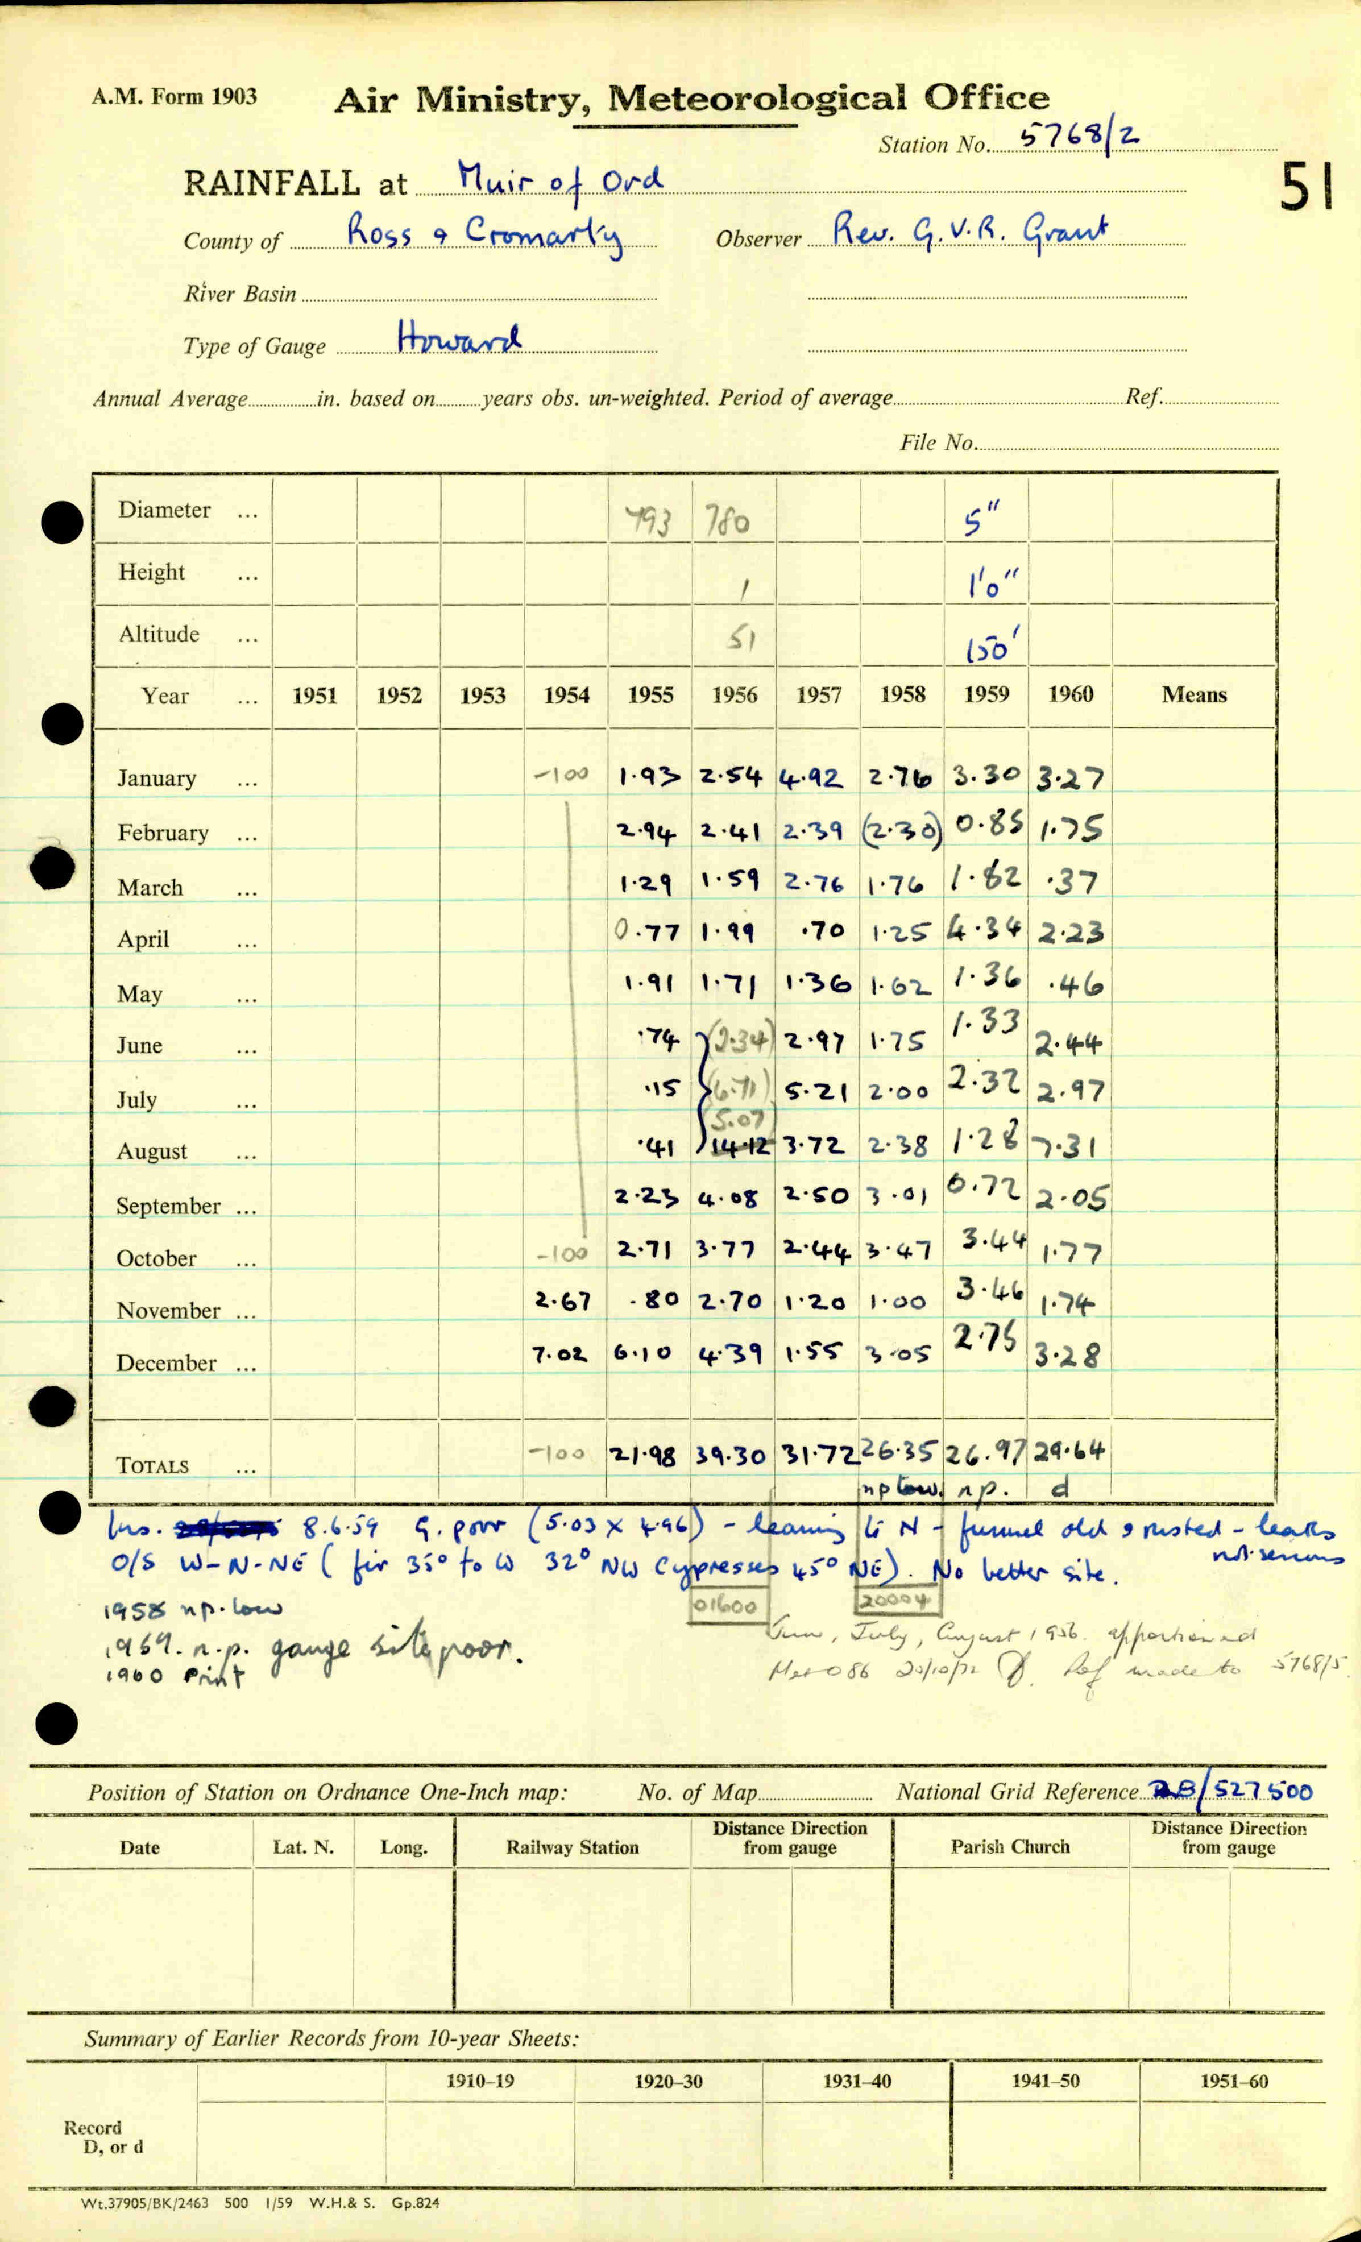 A.M. Form 1903 Air Ministry, Meteorological Office
Station No. 5768/2
RAINFALL at Muir of Ord 51
County of Ross & Cromarty Observer Rev. G.V.R. Grant
River Basin
Type of Gauge Howard
Annual Average in. based on years obs. un-weighted. Period of average Ref.
File No.
Diameter ... 793 780 5"
Height ... 1 1'0"
Altitude ... 51 150'
Year ... 1951 1952 1953 1954 1955 1956 1957 1958 1959 1960 Means
January ... -100 1.93 2.54 4.92 2.76 3.30 3.27
February ... 2.94 2.41 2.39 (2.30) 0.85 1.75
March ... 1.29 1.59 2.76 1.76 1.82 .37
April ... 0.77 1.99 .70 1.25 4.34 2.23
May ... 1.91 1.71 1.36 1.62 1.36 .46
June ... .74 (2.34) 2.97 1.75 1.33 2.44
July ... .15 (6.71) 5.21 2.00 2.32 2.97
(5.07)
August ... .41 14.12 3.72 2.38 1.28 7.31
September ... 2.23 4.08 2.50 3.01 0.72 2.05
October ... -100 2.71 3.77 2.44 3.47 3.44 1.77
November ... 2.67 .80 2.70 1.20 1.00 3.46 1.74
December ... 7.02 6.10 4.39 1.55 3.05 2.75 3.28
TOTALS ... -100 21.98 39.30 31.72 26.35 26.97 29.64
np low. n.p. d
Ins. 8.6.59 G. poor (5.03 x 4.96) - leaning to N - funnel old & rusted - leaks
not serious
O/S W-N-NE (fir 35° to W 32° NW Cypresses 45° NE). No better site.
01600 20004
1958 np. low
1959. n.p. gauge site poor.
1960 Print
June, July, August 1956 apportioned
Met O 86 20/10/72 Ref made to 5768/5
Position of Station on Ordnance One-Inch map: No. of Map National Grid Reference 28/527500
Date Lat. N. Long. Railway Station Distance Direction from gauge Parish Church Distance Direction from gauge
Summary of Earlier Records from 10-year Sheets:
1910-19 1920-30 1931-40 1941-50 1951-60
Record
D, or d
Wt.37905/BK/2463 500 1/59 W.H.& S. Gp.824